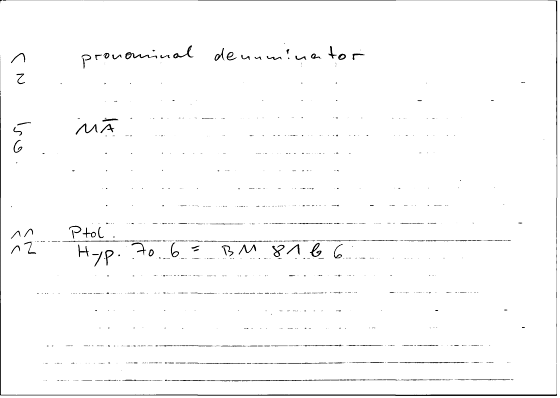 1 pronominal denuminator
2
5 MĀ
6
11 Ptol.
12 Hyp. 70. 6 = BM 81 b 6